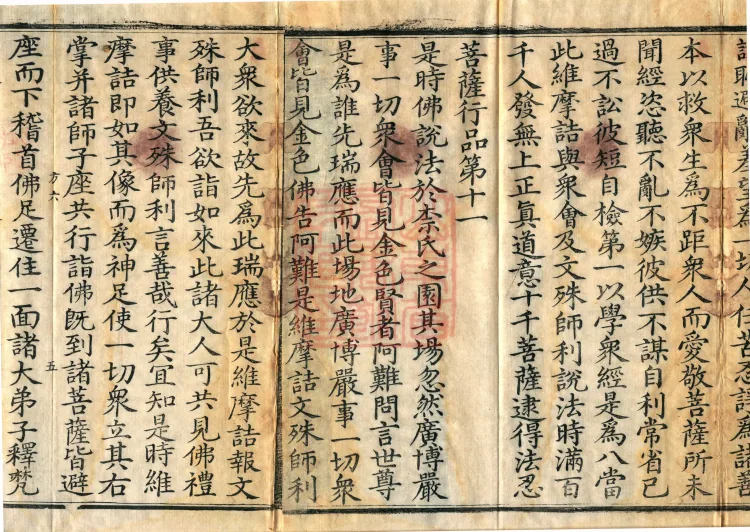 為一切人任苦忍諸為諸善
本以救衆生爲不距衆人而愛敬菩薩所未
聞經恣聽不亂不嫉彼供不謀自利常省已
過不訟彼短自檢第一以學衆經是爲八當
此維摩詰與衆會及文殊師利說法時滿百
千人發無上正眞道意十千菩薩逮得法忍
菩薩行品第十一
是時佛說法於柰氏之園其場忽然廣博嚴
事一切衆會皆見金色賢者阿難問言世尊
是爲誰先瑞應而此場地廣博嚴事一切衆
會皆見金色佛告阿難是維摩詰文殊師利
大衆欲來故先爲此瑞應於是維摩詰報文
殊師利吾欲詣如來此諸大人可共見佛禮
事供養文殊師利言善哉行矣宜知是時維
摩詰即如其像而爲神足使一切衆立其右
掌并諸師子座共行詣佛既到諸菩薩皆避
方六 五
座而下稽首佛足遷住一面諸大弟子釋梵